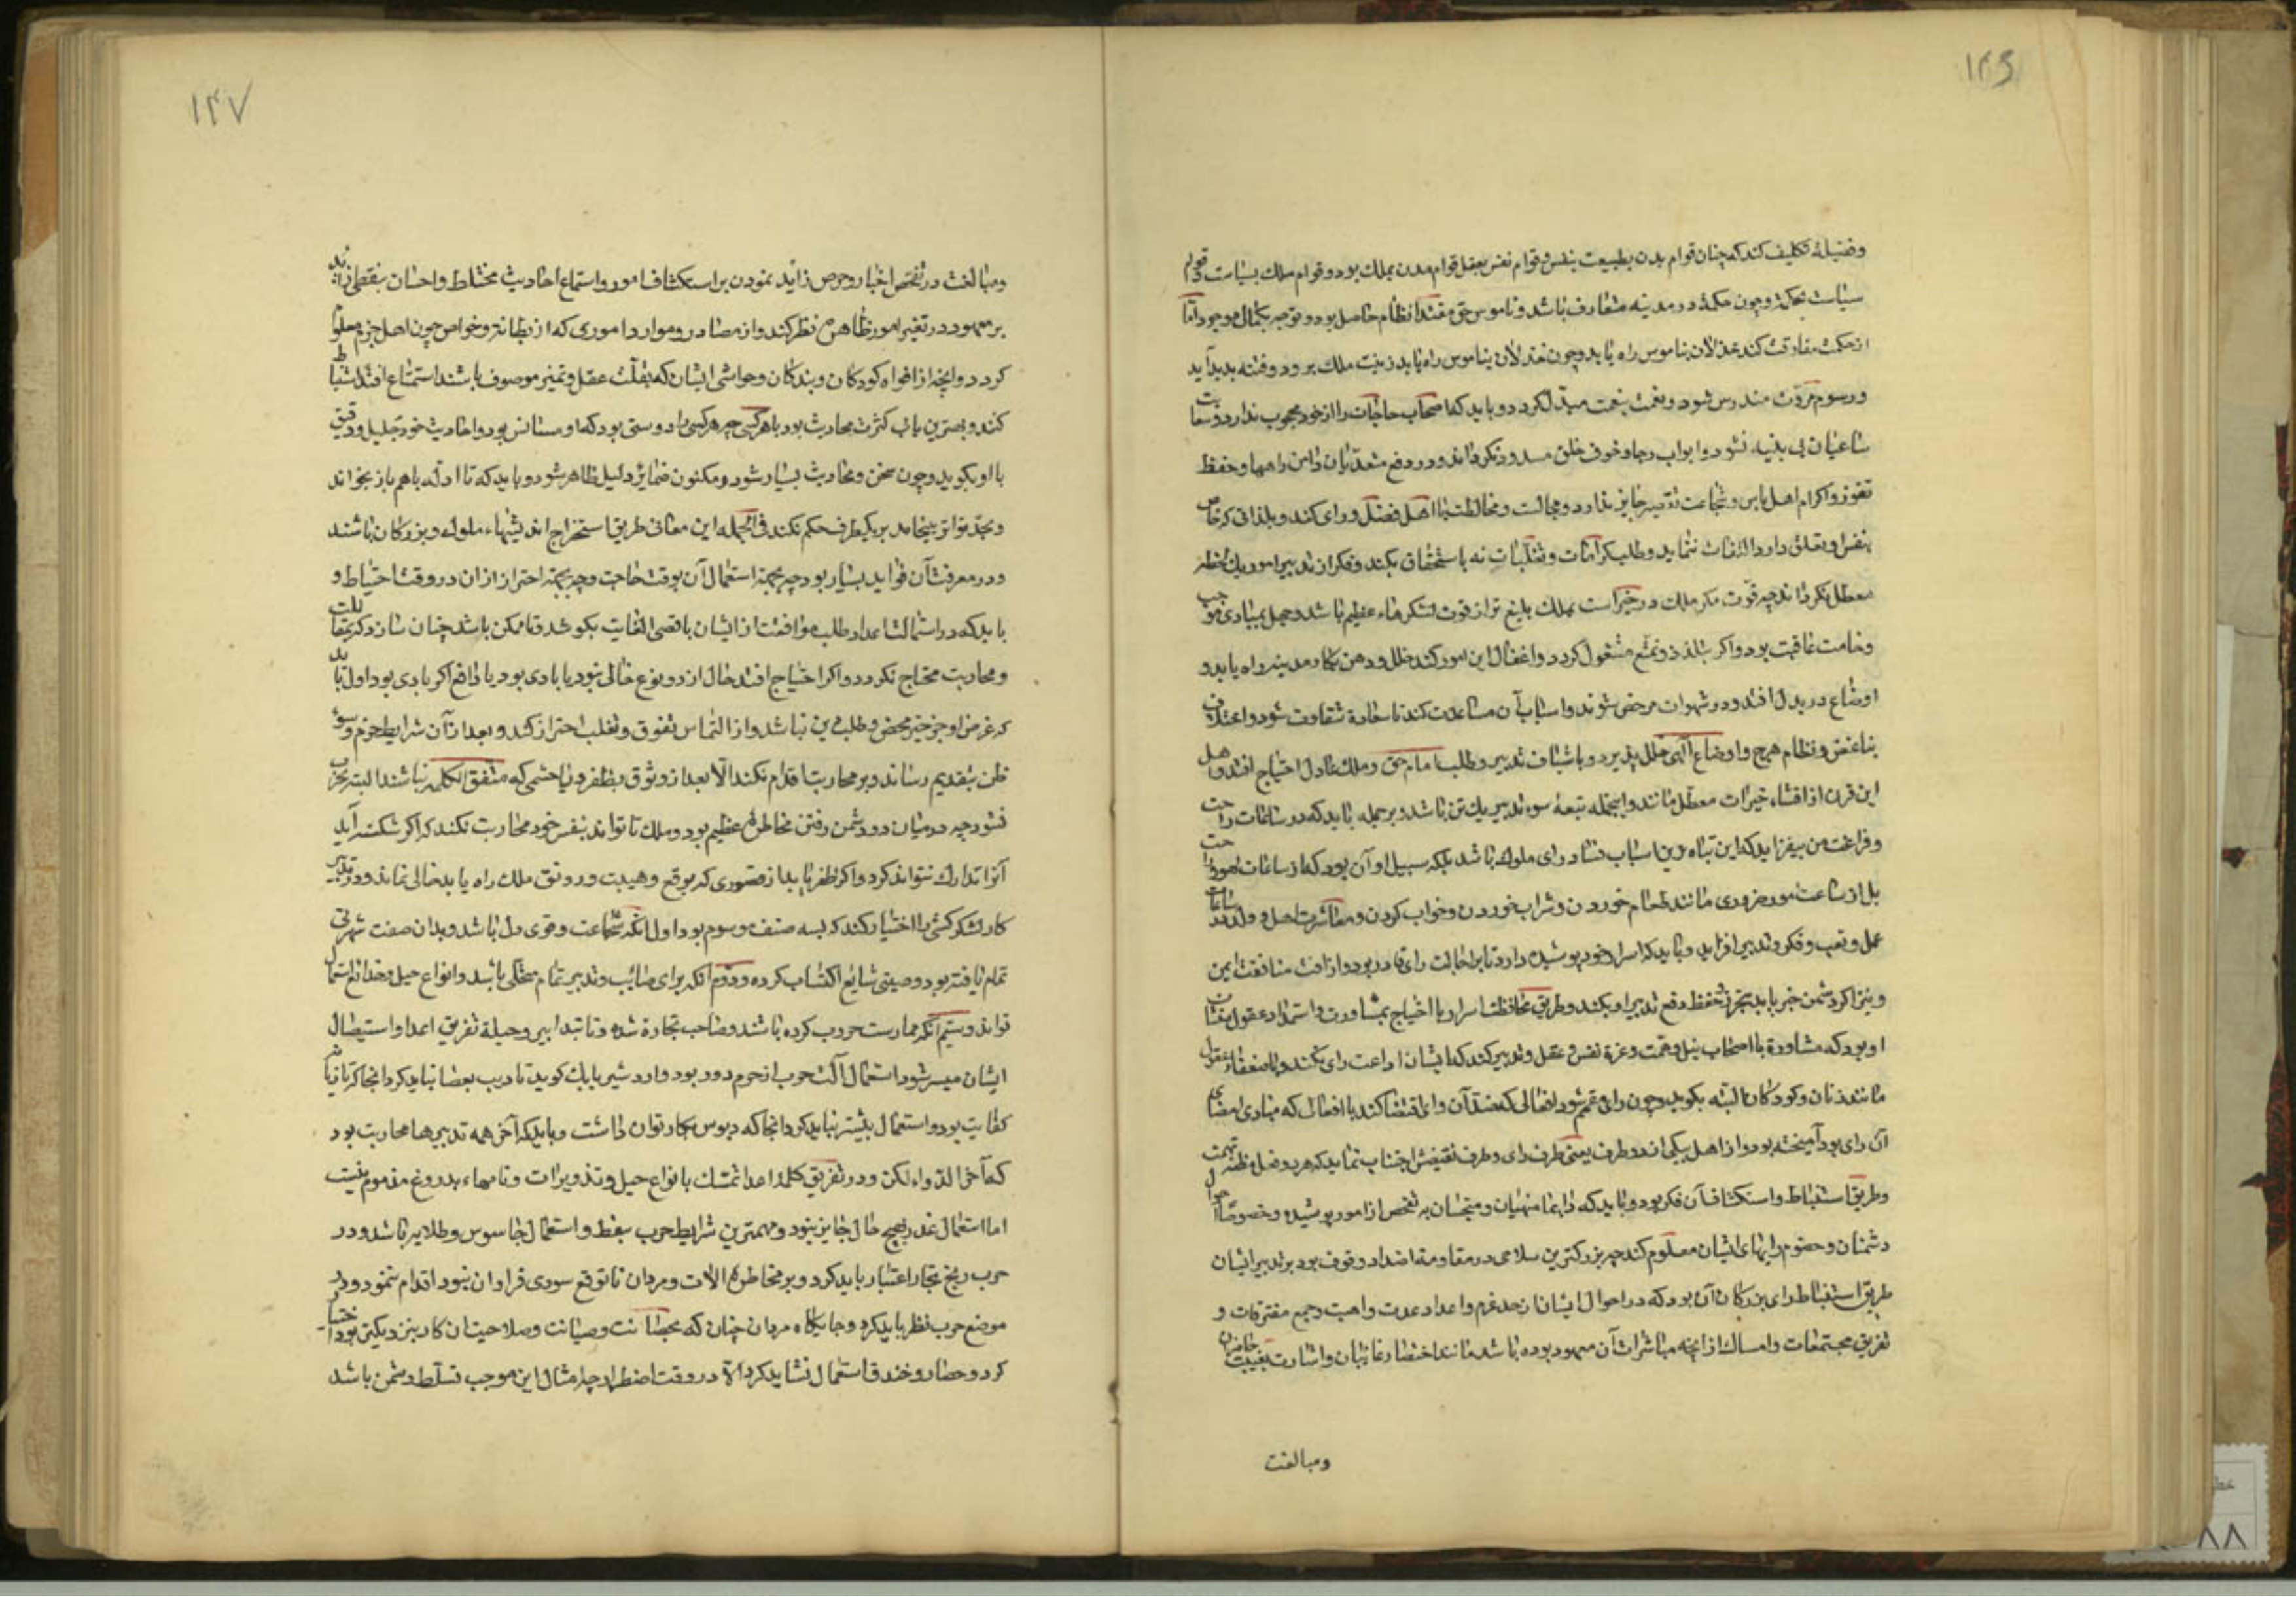 ۱۴۶
وفضیلة تکلیف کند که چنان قوام بدن بطبیعت بنفس و قوام نفس بعقل قوام مدن بملک بود و قوام ملک بسیاست و قوام
سیاست بحکمة و چون حکمة در مدینه متعارف باشد و ناموس حق مقتدا نظام حاصل بود و توجه بکمال موجود اما
از حکمت مفارقت کند خذلان بناموس راه یابد و چون خذلان بناموس راه یابد زینت ملک برود و فتنه پدید آید
و رسوم مروّت مندرس شود و نعمت بنقمت مبدّل کردد و باید که اصحاب حاجات را از خود محجوب ندارد و سعایت
ساعیان بی بینه نشنود و ابواب رجا و خوف خلق مسدود نکرداند و در دفع متعدّیان و امن راهها و حفظ
ثغور و اکرام اهل باس و شجاعت تقصیر جایز ندارد و مجالست و مخالطت با اهل فضل و رای کند و بلذاتی که خاص
بنفس او تعلق دارد التفات ننماید و طلب کرامات و تغلّبات نه باستحقاق نکند و فکر از تدبیر امور یک لحظه
معطل نکرداند چه قوّت فکر ملک در حراست مملکت بلیغ تر از قوت لشکرهاء عظیم باشد و جهل بمبادی موجب
وخامت عاقبت بود و اکر بتلذذ و تمتع مشغول کردد و اغفال این امور کند خلل و وهن بکار مدینه راه یابد و
اوضاع در بدل افتد و در شهوات مرخص شوند و اسباب آن مساعدت کند تا سعادة شقاوت شود و ائتلاف
تباغض و نظام هرج و اوضاع آلهی خلل پذیرد و باستیناف تدبیر و طلب امام حق و ملک عادل احتیاج افتد و اهل
این قرن از اقتناء خیرات معطّل مانند و اینجمله تبعۀ سوء تدبیر یک تن باشد و بر جمله باید که در ساعات راحت
و فراغت من بیفزاید که این تباه ترین اسباب فساد رای ملوک باشد بلکه سبیل او آن بود که از ساعات لهو و راحت
بل از ساعت امور ضروری مانند طعام خوردن و شراب خوردن و خواب کردن و معاشرت اهل و ولد در ساعات
عمل و تعب و فکر و تدبیر افزاید و باید که اسرار خود پوشیده دارد تا بر اجالت رای قادر بود و از آفت مناقضت ایمن
و نیز اکر دشمن خبر یابد بتحرز و تحفظ دفع تدبیر او بکند و طریق محافظت اسرار با احتیاج بمشاورت و استمداد عقول
او بود که مشاورة با اصحاب نبل و همّت و عزة نفس و عقل و تدبیر کند که ایشان اذاعت رای نکنند و با ضعفاء عقول
مانند زنان و کودکان البته نکوید و چون رای مصمم شود افعالی که ضد آن رای اقتضا کند با افعالی که مبادی امضای
آن رای بود آمیخته بود و از اهل بیکی از دو طرف یعنی طرف رای و طرف نقیضش اجتناب نماید که هر دو فعل مظنه تهمت
و طریق استنباط و استکشاف آن فکر بود و باید که دایما منهیان و متجسّسان به تفحص از امور پوشیده و خصوصاً احوال
دشمنان و خصوم رایهای ایشان معلوم کند چه بزرکترین سلاحی در مقاومة اضداد وقوف بود بر تدبیر ایشان
طریق استنباط رای بزرکان آن بود که در احوال ایشان از حد عزم و اعداد عدت و اهبت و جمع متفرقات و
تفریق مجتمعات و امساک از آنچه مباشرات آن معهود بوده باشد مانند احضار غایبان و اشارت بغیبت حاضران
ومبالغت
۱۴۷
ومبالغت در تفحص اخبار و حرص زائد نمودن بر استکشاف امور و استماع احادیث مختلط و احسان بتیقظی زاید
بر معهود در تغیر امور ظاهره نظر کند و از مصادر و موارد اموری که از بطانة و خواص چون اهل حرم معلوم
کردد و آنچه از افواه کودکان و بندکان و حواشی ایشان که بقلّت عقل و تمیز موصوف باشند استماع افتد استنباط
کنند و بهترین باب کثرت محادثت بود با هر کسی چه هر کسی را دوستی بود که او مستانس بود و احادیث خود جلیل و دقیق
با او بکوید و چون سخن و محادثت بسیار شود و مکنون ضمایر دلیل ظاهر شود و باید که تا ادلّه با هم باز نخواند
و بحدّ تواتر نینجامد بر یکطرف حکم نکند فی الجمله این معانی طریق استخراج اندیشهاء ملوک و بزرکان باشند
و در معرفت آن فواید بسیار بود چه بجهة استعمال آن بوقت حاجت و چه بجهة احتراز از ان در وقت احتیاط و
باید که در استمالت اعدا و طلب موافقت از ایشان باقصی الغایت بکوشد و تا ممکن باشد چنان سازد که بمقاتلت
و محاربت محتاج نکردد و اکر احتیاج افتد حال از دو نوع خالی نبود یا بادی بود یا دافع اکر بادی بود اول باید
که غرض او جز خیر محض و طلب دین نباشد و از التماس تفوق و تغلب احتراز کند و بعد از آن شرایط حزم و سوء
ظن بتقدیم رساند و بر محاربت اقدام نکند الّا بعد از وثوق بظفر و با حشمی که متفق الکلمه نباشند البته بحرب
نشود چه در میان دو دشمن رفتن مخاطرهٔ عظیم بود و ملک تا تواند بنفس خود محاربت نکند که اکر شکسته آید
آنرا تدارک نتواند کرد و اکر ظفر یابد از قصوری که بوقع و هیبت و رونق ملک راه یابد خالی نماند و در تدبیر
کار لشکر کسی را اختیار کند که بسه صنف موسوم بود اول آنکه شجاعت و قوی دل باشد و بدان صفت شهرتی
تمام یافته بود و صیتی شایع اکتساب کرده و دوم آنکه برای صائب و تدبیر تمام متحلّی باشد و انواع حیل و خدایع استعمال
تواند و سیّم آنکه ممارست حروب کرده باشد و صاحب تجارة شده و تا تبدابیر و حیلة تفریق اعدا و استیصال
ایشان میسر شود استعمال آلت حرب از حزم دور بود و اردشیر بابک کوید تا دیب بعصا نباید کرد آنجا که تازیانه
کفایت بود و استعمال بیشتر نباید کرد آنجا که دبوس بکار توان داشت و باید که آخر همه تدبیرها محاربت بود
که آخر الدواء الکی و در تفریق کلمۀ اعدا تمسّک بانواع حیل و تذویرات و نامهاء بدروغ مذموم نیست
اما استعمال غدر بهیچ حال جایز نبود و مهمترین شرایط حرب تیقظ و استعمال جاسوس و طلایه باشد و در
حرب ربح تجار اعتبار باید کرد و بر مخاطرهٔ آلات و مردان تا توقع سودی فراوان نبود اقدام ننمود و در
موضع حرب نظر باید کرد و جایکاه مردان چنان که بحصانت و صیانت و صلاحیت ان کار نزدیکتر بود اختیار
کرد و حصار و خندق استعمال نشاید کرد الّا در وقت اضطرار چه امثال این موجب تسلّط دشمن باشد